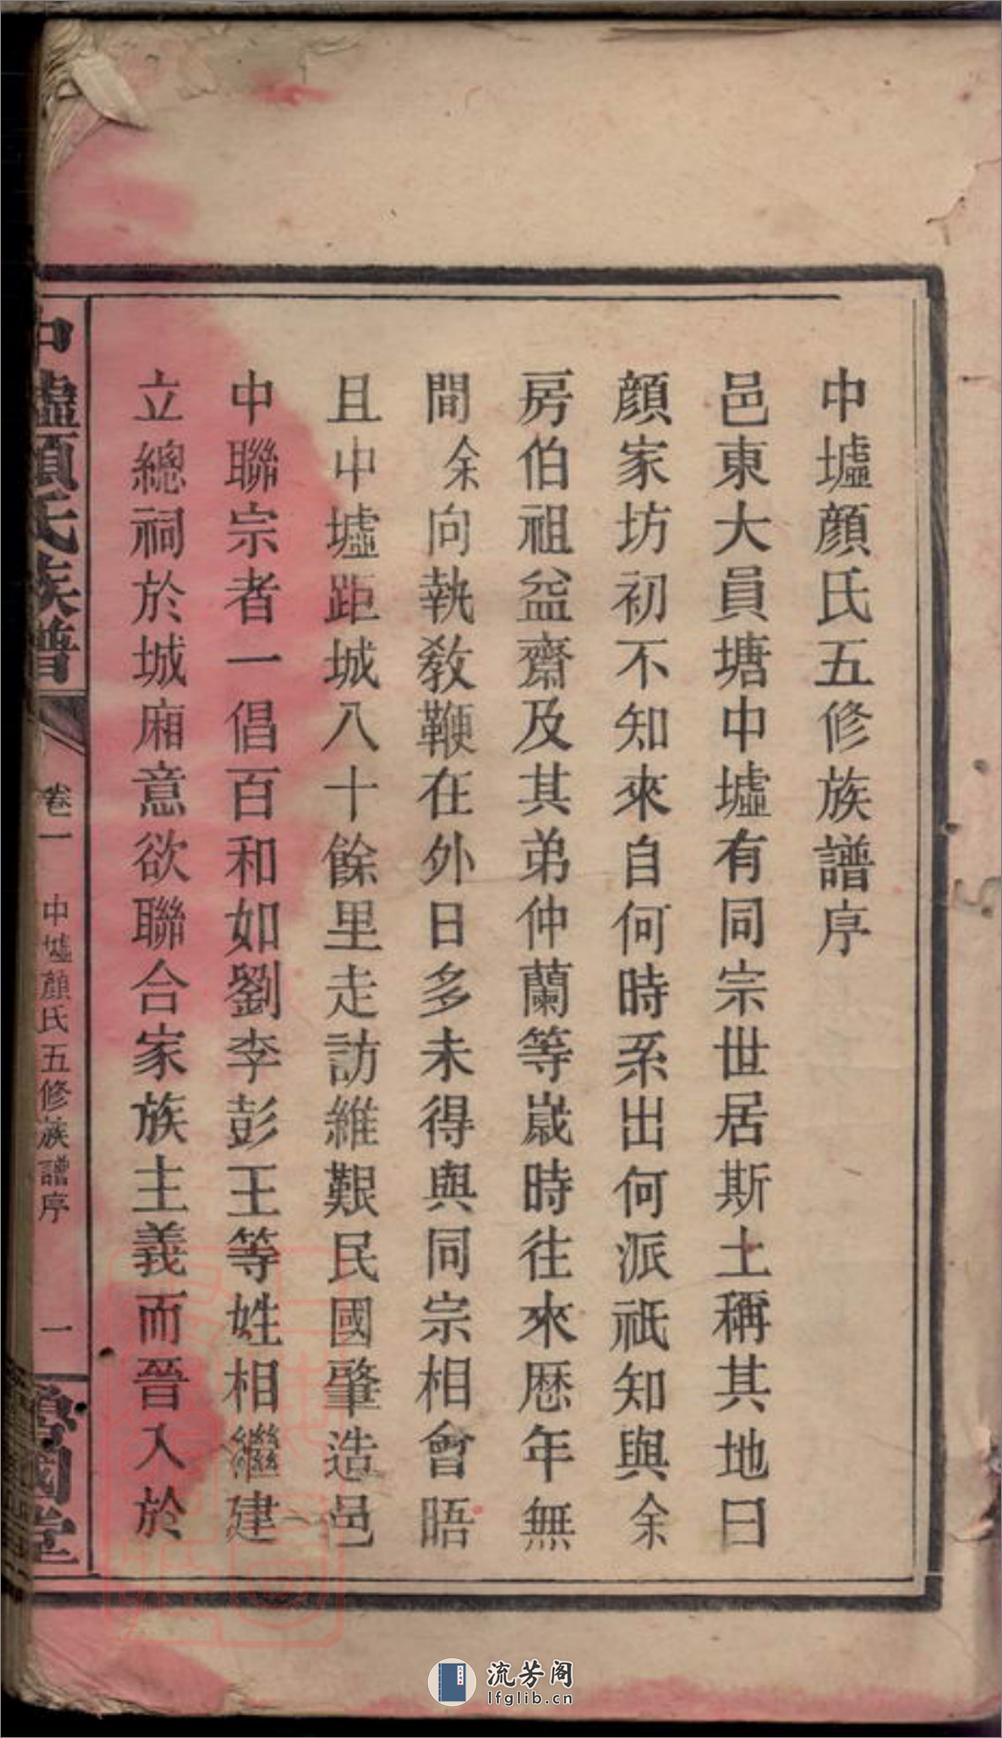 中墟顔氏五修族譜序
邑東大員塘中墟有同宗世居斯土稱其地曰
顔家坊初不知來自何時系出何派祇知與余
房伯祖益齋及其弟仲蘭等歲時往來歷年無
間余向執敎鞭在外日多未得與同宗相會晤
且中墟距城八十餘里走訪維艱民國肇造邑
中聯宗者一倡百和如劉李彭王等姓相繼建
立總祠於城廂意欲聯合家族主義而晉入於
中墟顔氏族譜
卷一
中墟顔氏五修族譜序
一
魯國堂
流芳阁
lfglib.cn